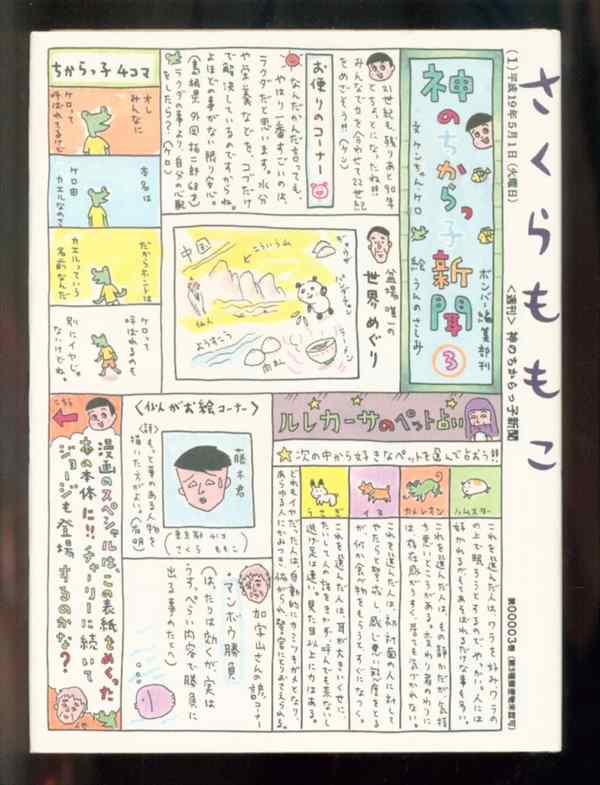 さくらももこ
(1) 平成19年5月1日 (火曜日)
<週刊> 神のちからっ子新聞
第00003巻
神のちからっ子新聞
3
文 ケンちゃん ケロ
絵 うんのさしみ
ボンバー編集部刊
21世紀も、残りあと90年
とちょっとになったね!!!
みんなで力を合わせて22世紀
をめざそう!!(ケン)
お便りのコーナー
なんだかんだ言っても、
やはり一番すごいのは、
ラクダだと思います。水分
や栄養などをコブだけ
で解決しているのですからね。
よほどの事がない限り安心。
ラクダの事より、自分の心配
をしたら?(ケロ)
ちからっ子4コマ
オレ
みんなに
ケロって
呼ばれてるけど
本名は
ケロ田
カエルなのさ
だからホントは
カエルっていう
名前なんだ
ケロって
呼ばれるのも
別にイヤじゃ
ないけどね。
世界めぐり
中国
こういう山
仙人
ようすこう
ギョウザ
パンダチャン
ラーメン
ルレカーサのペット占い
★次の中から好きなペットを選んで占おう!!
ハムスター
カメレオン
イヌ
うさぎ
これを選んだ人は、ワラを好みワラの
上で眠ろうとするのでやっかい。人には
好かれるがもてあそばれるだけな事も多い。
これを選んだ人は、もの静かだが気持
ち悪いところがある。
これを選んだ人は、初対面の人に対して
これを選んだ人は、耳が大きいくせに
たいして人の話をきかず、呼んでも来ないし
逃げ足は速い。見た目以上に力はある。
<似がお絵コーナー>
藤木君
(東京都 さくらももこ)
<評>もっと華のある人物を
描いた方がよい。
マンボウ勝負
(は、たりは効くが実は
うすっぺらい内容で勝負に
出る事のたとえ)
こちら
漫画のスペシャルは、この表紙をめくった
本の本体に!!チャーリーに続いて
ジョージも登場するのかな?